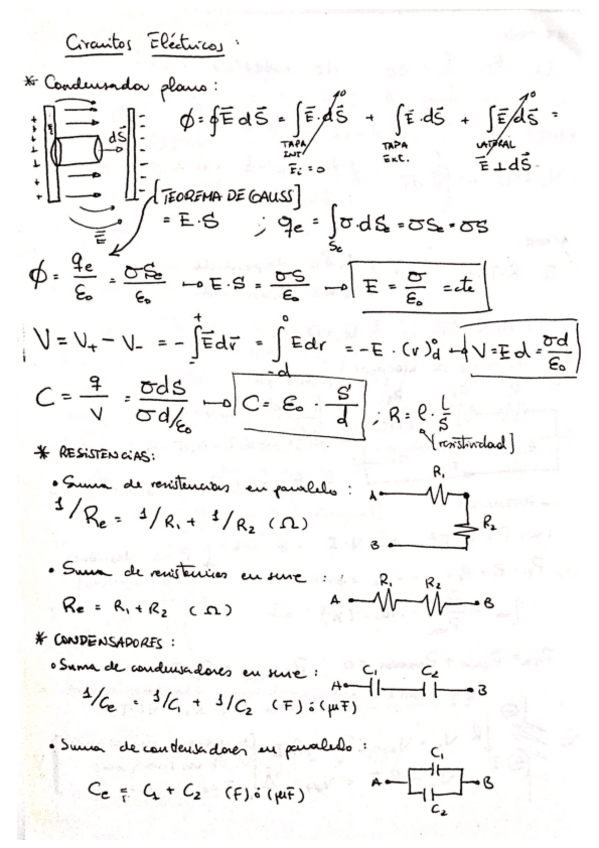 Circuitos Eléctricos:
* Condensador plano:
+ + + + + + + - - - - - - - dS⃗ E⃗
ϕ = ∮E⃗ dS⃗ = ∫E⃗·dS⃗ + ∫E⃗·dS⃗ + ∫E⃗·dS⃗ =
0 0
TAPA INT. TAPA EXC. LATERAL
E⃗i = 0 E⃗ ⊥ dS⃗
[TEOREMA DE GAUSS]
= E·S ; qe = ∫Se σ·dSe = σSe = σS
ϕ = qe/ε₀ = σSe/ε₀ → E·S = σS/ε₀ → E = σ/ε₀ = cte
V = V₊ - V₋ = -∫₋⁺ E⃗dr⃗ = ∫₋d⁰ Edr = -E·(r)d⁰ → V = Ed = σd/ε₀
C = q/V = σdS/σd/ε₀ → C = ε₀ · S/d ; R = ρ · L/S
[resistividad]
* RESISTENCIAS:
• Suma de resistencias en paralelo: A R₁
1/Re = 1/R₁ + 1/R₂ (Ω) R₂
B
• Suma de resistencias en serie: R₁ R₂
Re = R₁ + R₂ (Ω) A B
* CONDENSADORES:
• Suma de condensadores en serie: A C₁ C₂ B
1/Ce = 1/C₁ + 1/C₂ (F) ó (μF)
• Suma de condensadores en paralelo: C₁
A B
Ce = C₁ + C₂ (F) ó (μF) C₂